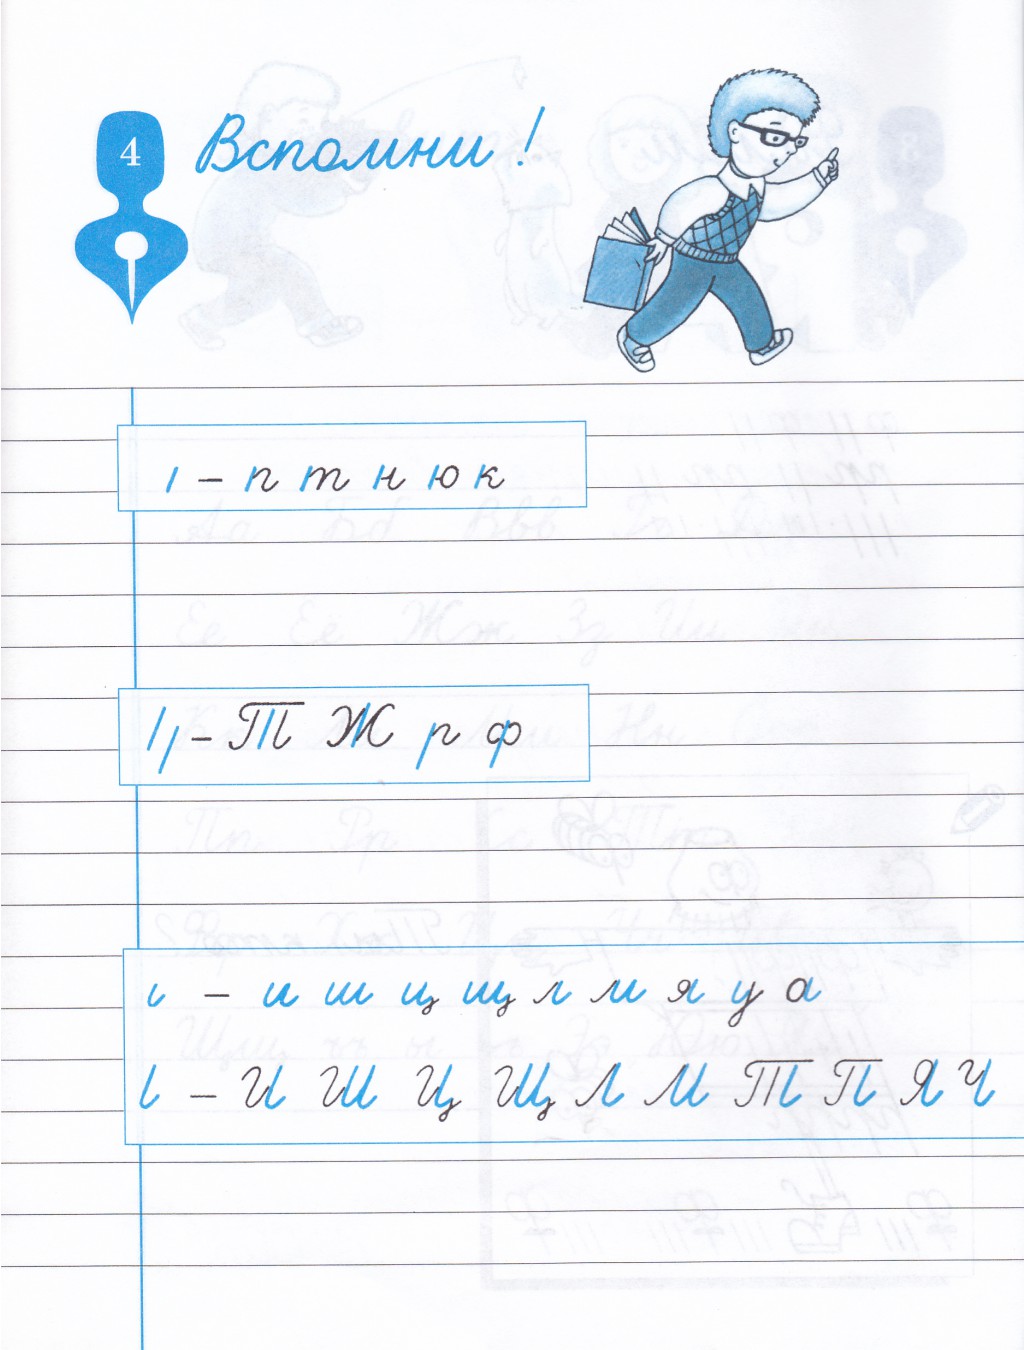 4
Вспомни!
ı – п т н ю к
Т Ж р ф
и ш ц щ л м я у а
И Ш Ц Щ Л М Т П Я Ч